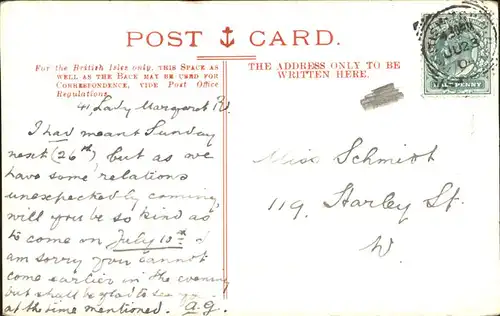 POST CARD.
For the British Isles only, THIS SPACE AS
WELL AS THE BACK MAY BE USED FOR
CORRESPONDENCE, VIDE Post Office
Regulations.
THE ADDRESS ONLY TO BE
WRITTEN HERE.
41, Lady Margaret Rd.
I had meant Sunday
next (26th), but as we
have some relations
unexpectedly coming,
will you be so kind as
to come on July 10th I
am sorry you cannot
come earlier in the evening
but shall be glad to see you
at the time mentioned. A.G.
Miss Schmidt
119, Harley St.
W.
JU 23
HALFPENNY